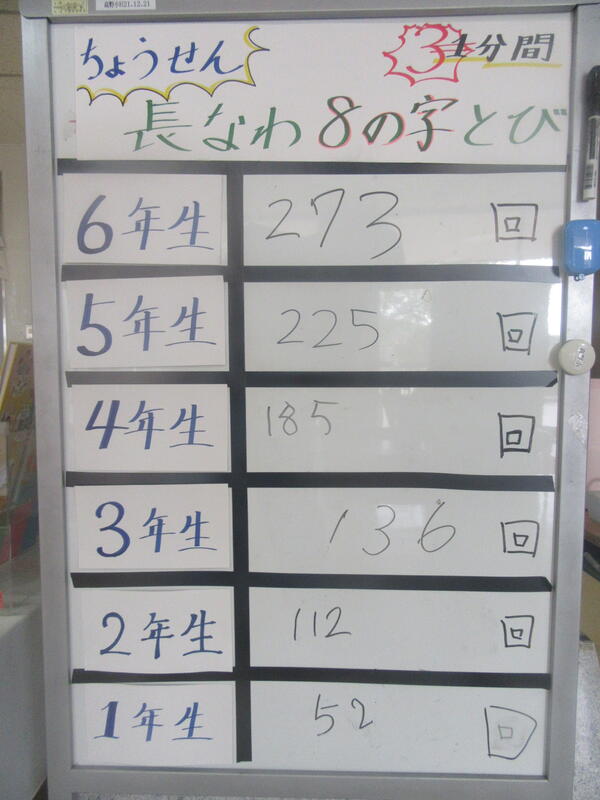 ちょうせん
3分間
長なわ8の字とび
6年生 273 回
5年生 225 回
4年生 185 回
3年生 136 回
2年生 112 回
1年生 52 回